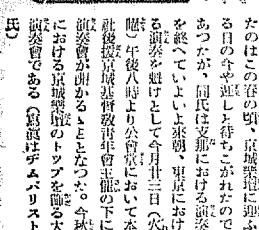 たのはこの春の頃、京城樂壇に迎ふ
る日の今や遲しと待ちこがれたので
あつたが、同氏は支那における演奏
を終へていよいよ來朝、東京におけ
る演奏を魁けとして今月廿三日(火
曜)午後八時より公會堂において本
社後援京城基督敎靑年會主催の下に
演奏會が開かるゝことなつた。今秋
における京城樂壇のトップを飾る大
演奏會である(寫眞はヂムバリスト
氏)